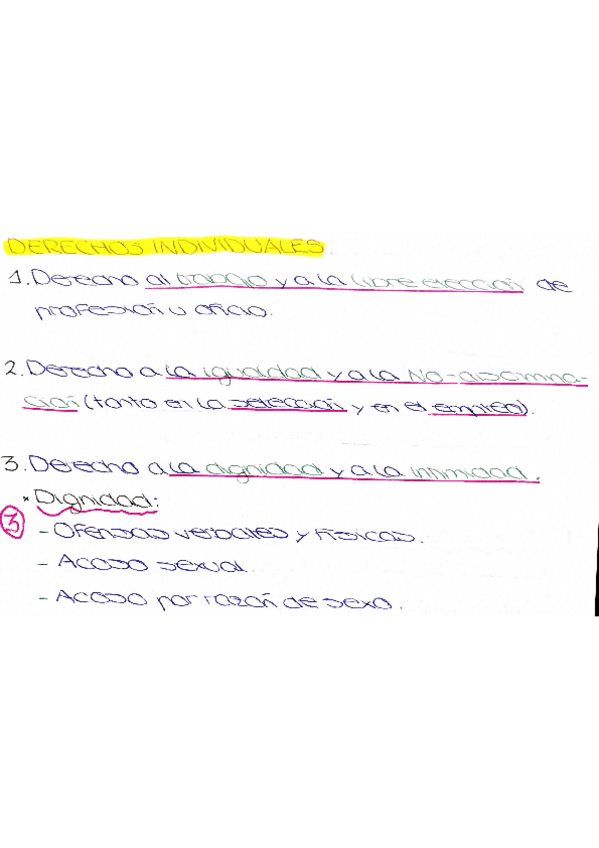 DERECHOS INDIVIDUALES.
1. Derecho al trabajo y a la libre elección de
profesión u oficio.
2. Derecho a la igualdad y a la No-discrimina-
ción (tanto en la selección y en el empleo).
3. Derecho a la dignidad y a la intimidad.
* Dignidad:
③
- Ofensas verbales y físicas.
- Acoso sexual.
- Acoso por razón de sexo.